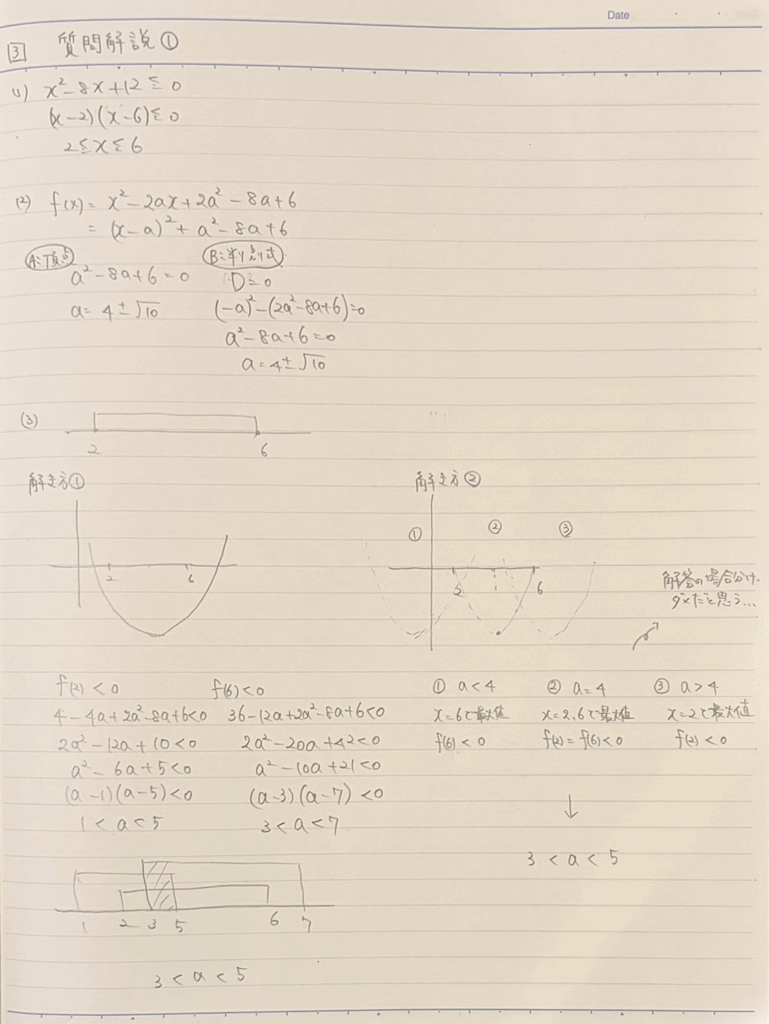 Date
3 質問解説①
(1) x²-8x+12≦0
(x-2)(x-6)≦0
2≦x≦6
(2) f(x)= x²-2ax+2a²-8a+6
= (x-a)²+a²-8a+6
A:頂点
a²-8a+6=0
a= 4±√10
B:判別式
D=0
(-a)²-(2a²-8a+6)=0
a²-8a+6=0
a=4±√10
(3)
2 6
解き方①
2 6
f(2)<0
4-4a+2a²-8a+6<0
2a²-12a+10<0
a²-6a+5<0
(a-1)(a-5)<0
1<a<5
f(6)<0
36-12a+2a²-8a+6<0
2a²-20a+42<0
a²-10a+21<0
(a-3)(a-7)<0
3<a<7
1 2 3 5 6 7
3<a<5
解き方②
① ② ③
2 6
解答の場合分け、
ダメだと思う...
① a<4
x=6で最大値
f(6)<0
② a=4
x=2,6で最大値
f(2)=f(6)<0
③ a>4
x=2で最大値
f(2)<0
↓
3<a<5